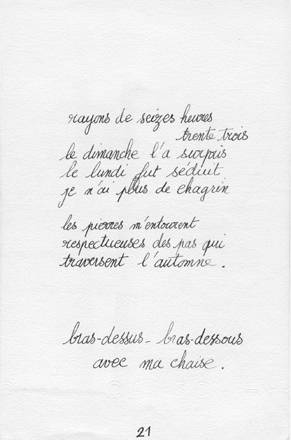 rayons de seizes heures
trente trois
le dimanche l'a surpris
le lundi fut séduit
je n'ai plus de chagrin
les pierres m'entourent
respectueuses des pas qui
traversent l'automne.
bras-dessus - bras-dessous
avec ma chaise.
21